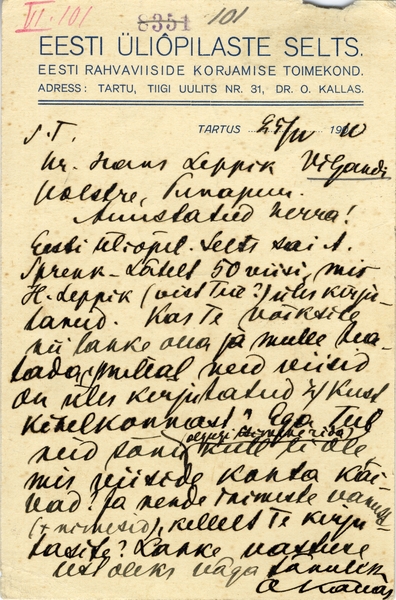 VI. 101
8351 101
EESTI ÜLIÕPILASTE SELTS.
EESTI RAHVAVIISIDE KORJAMISE TOIMEKOND.
ADRESS: TARTU, TIIGI UULITS NR. 31, DR. O. KALLAS.
TARTUS 190
S. T.
Hr. Hans Leppik Viljandi
Holstre,
Austatud herra!
Eesti Üliõpil. Selts sai A.
Sprenk-Läte'lt 50 viisi, mis
H. Leppik (vist Teie?) üles kirju-
tanud. Kas Te võiksite
nii lahke olla ja mulle tea-
tada, 1) millal need viisid
on üles kirjutatud 2) kust
kihelkonnast? Ega Teil
neid sõnu küll ei ole,
mis viiside kohta käi-
vad? Ja nende inimeste vanust
(+ nimesid), kellelt Te kirju-
tasite? Lahke vastuse
eest oleks väga tänulik
O Kallas